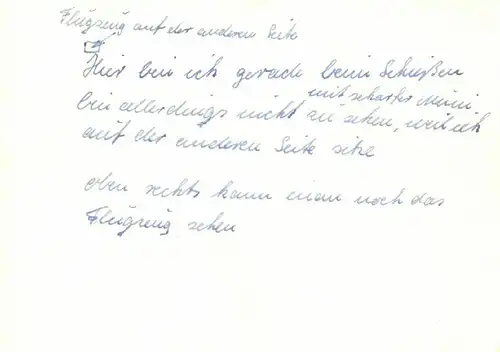 Flugzeug auf der anderen Seite
Hier bin ich gerade beim Schießen
mit scharfer Muni
bin allerdings nicht zu sehen, weil ich
auf der anderen Seite sitze
oben rechts kann man noch das
Flugzeug sehen